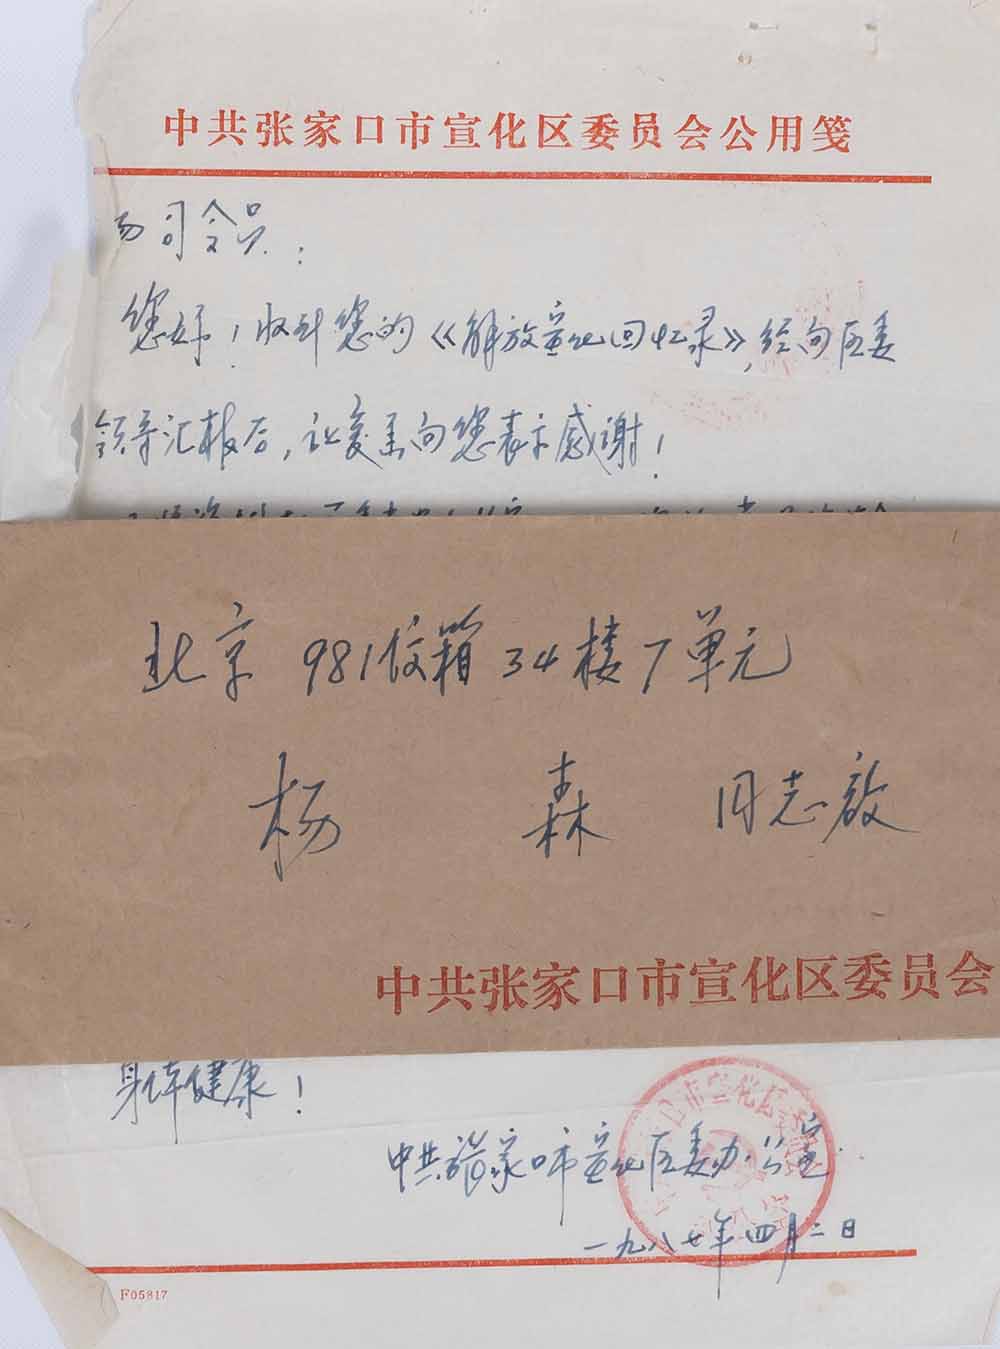 中共张家口市宣化区委员会公用笺
司令员：
您好！收到您的《解放宣化回忆录》，经向区委
领导汇报后，让我们向您表示感谢！
北京 981信箱 34楼7单元
杨 森 同志启
中共张家口市宣化区委员会
身体健康！
中共张家口市宣化区委办公室
一九八七年四月二日
F05817